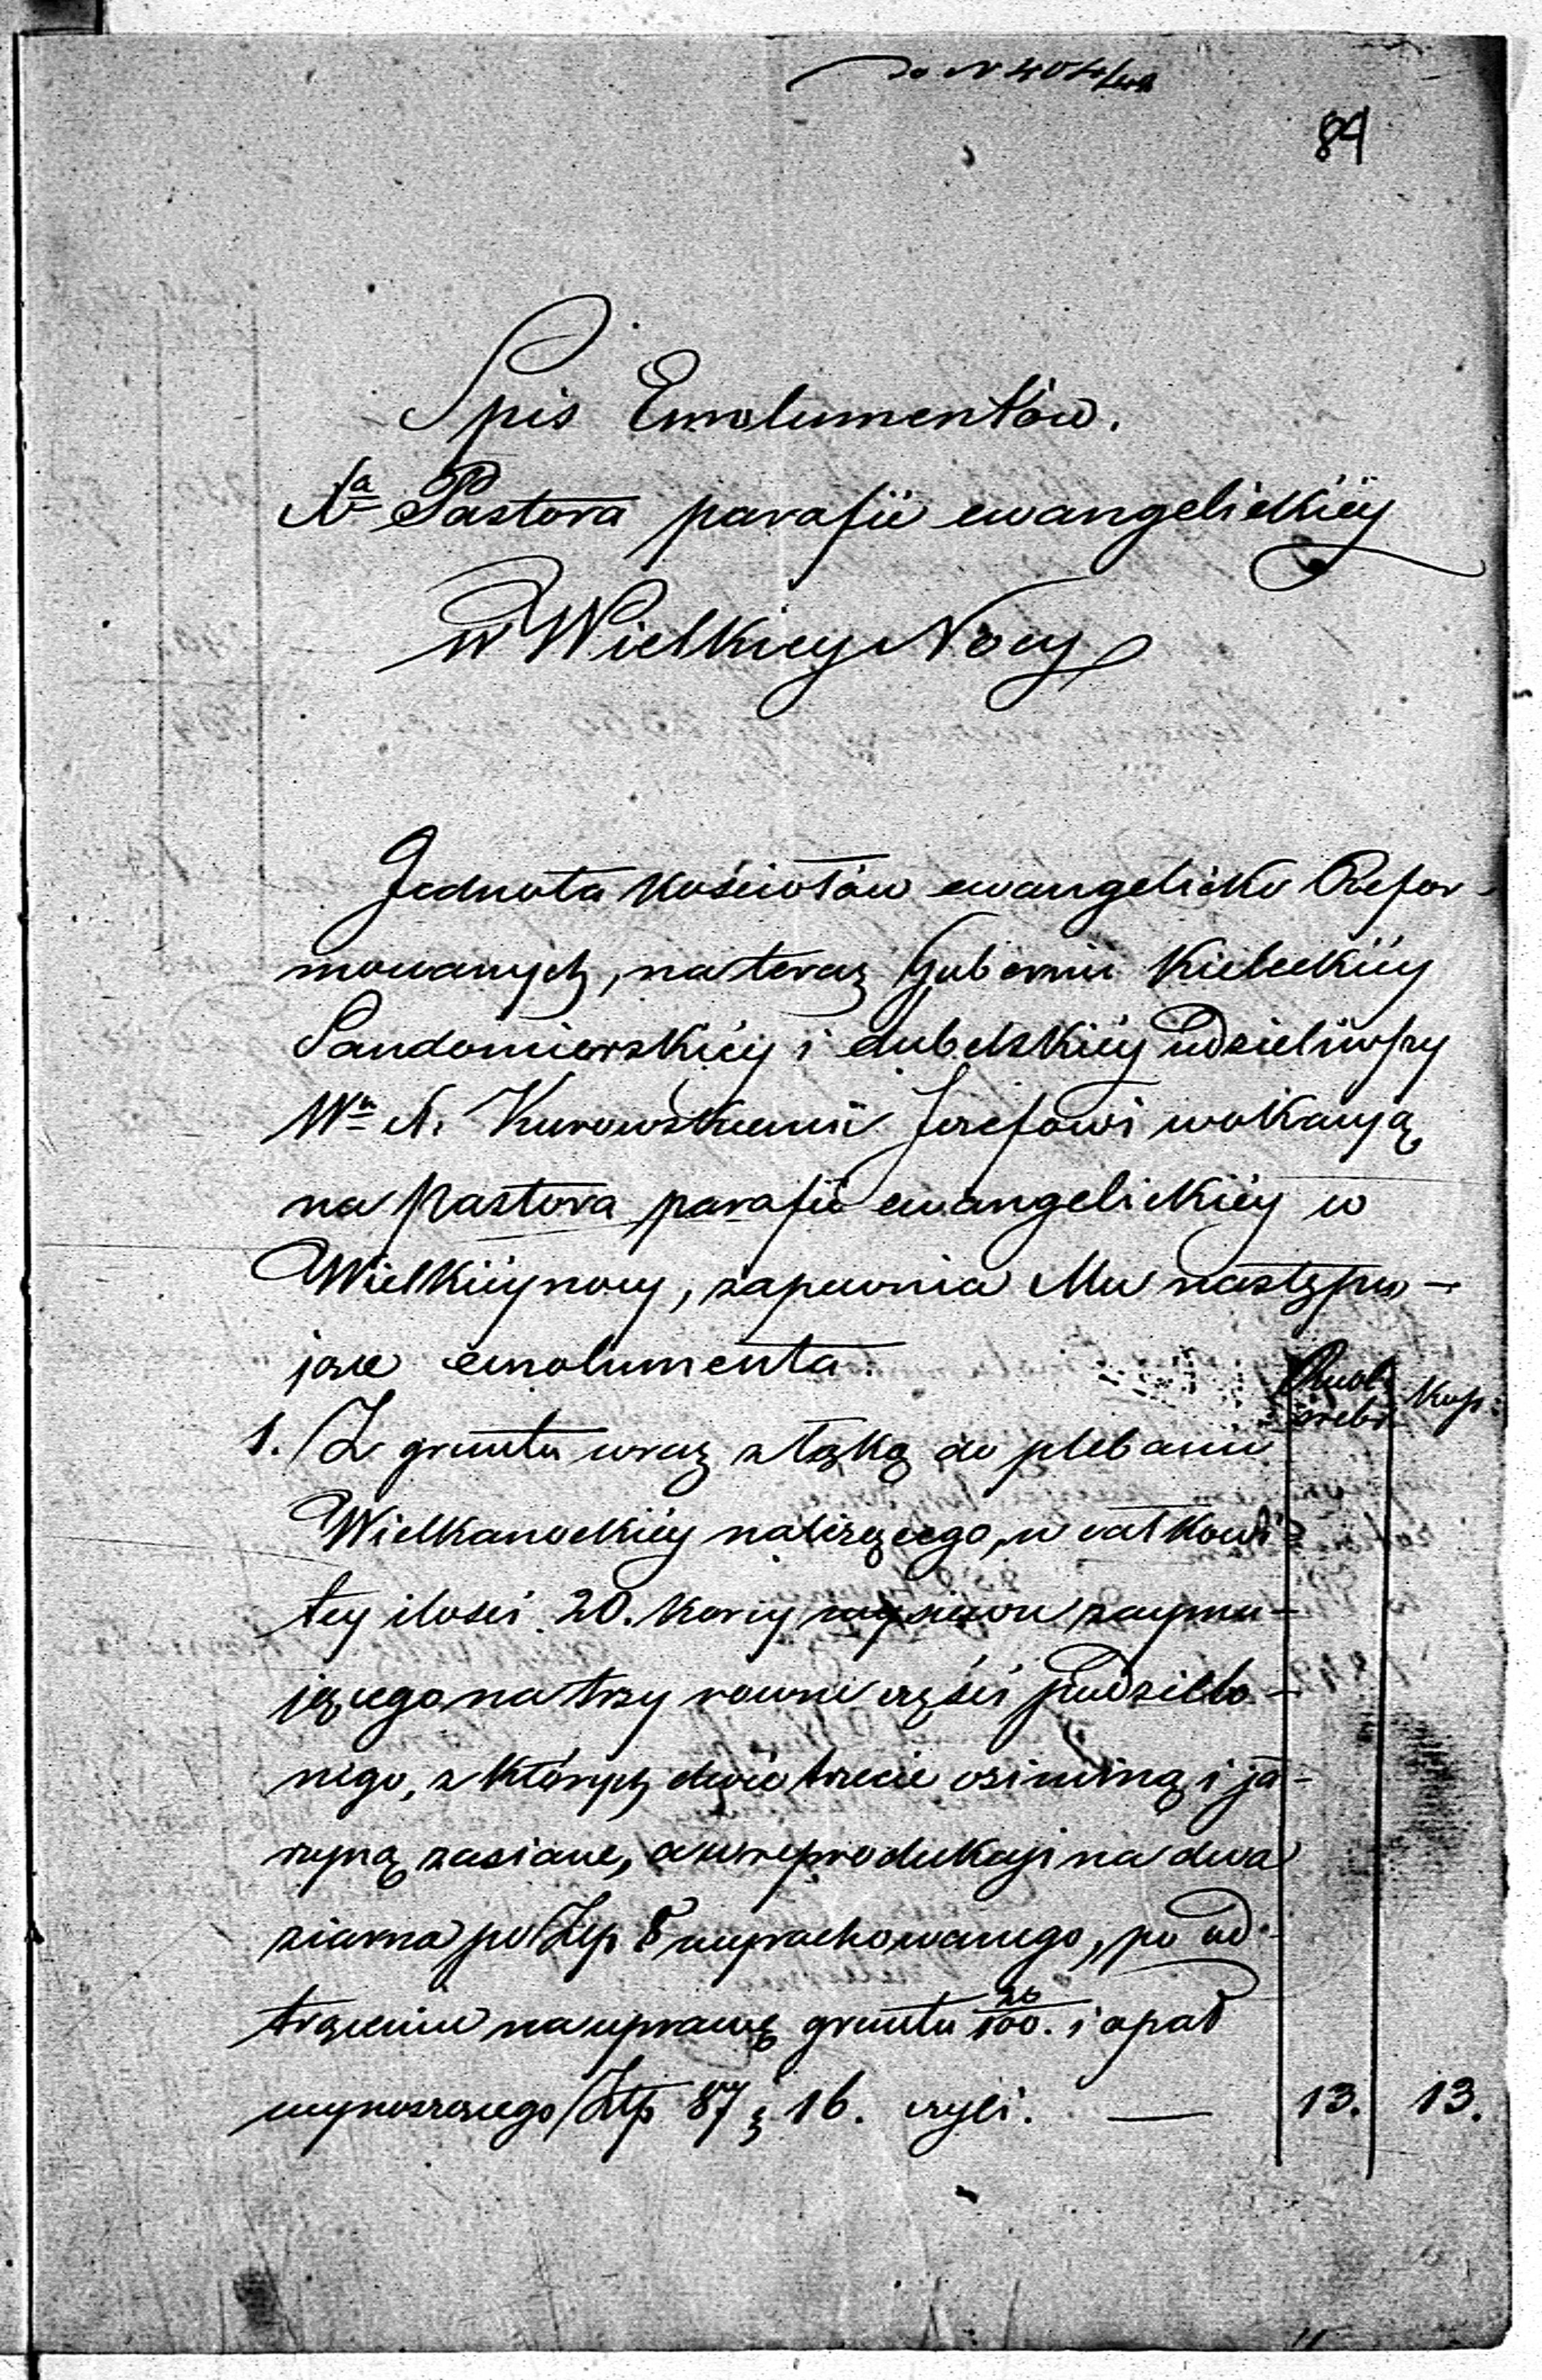 do N 404/
84
Spis Emolumentów.
Na Pastora parafii ewangelickiéy
w Wielkiey Nocy
Jednota Kościołów ewangelicko Refor-
mowanych, na teraz Gubernii Kieleckiéy
Sandomierskiéy i Lubelskiéy udzieliwszy
Wu N. Kurowskiemu Jozefowi wokacyą
na Pastora parafii ewangelickiéy w
Wielkiéynocy, zapewnia Mu następu-
jące emolumenta
Rubl
srebr.
Kop:
1. Z gruntu wraz z łąką do plebanii
Wielkanockiéy należącego, w całkowi
tey ilości 20. korcy wysiewu zaymu-
jącego na trzy rowne części podzielo-
nego, z których dwie trzecie oziminą i ja-
rzyną zasiane, a w reprodukcyi na dwa
ziarna po Złp 8 wyrachowanego, po od-
trąceniu na uprawę gruntu 26/100. i opał
wynoszącego Złp 87 g 16. czyli. — 13. 13.